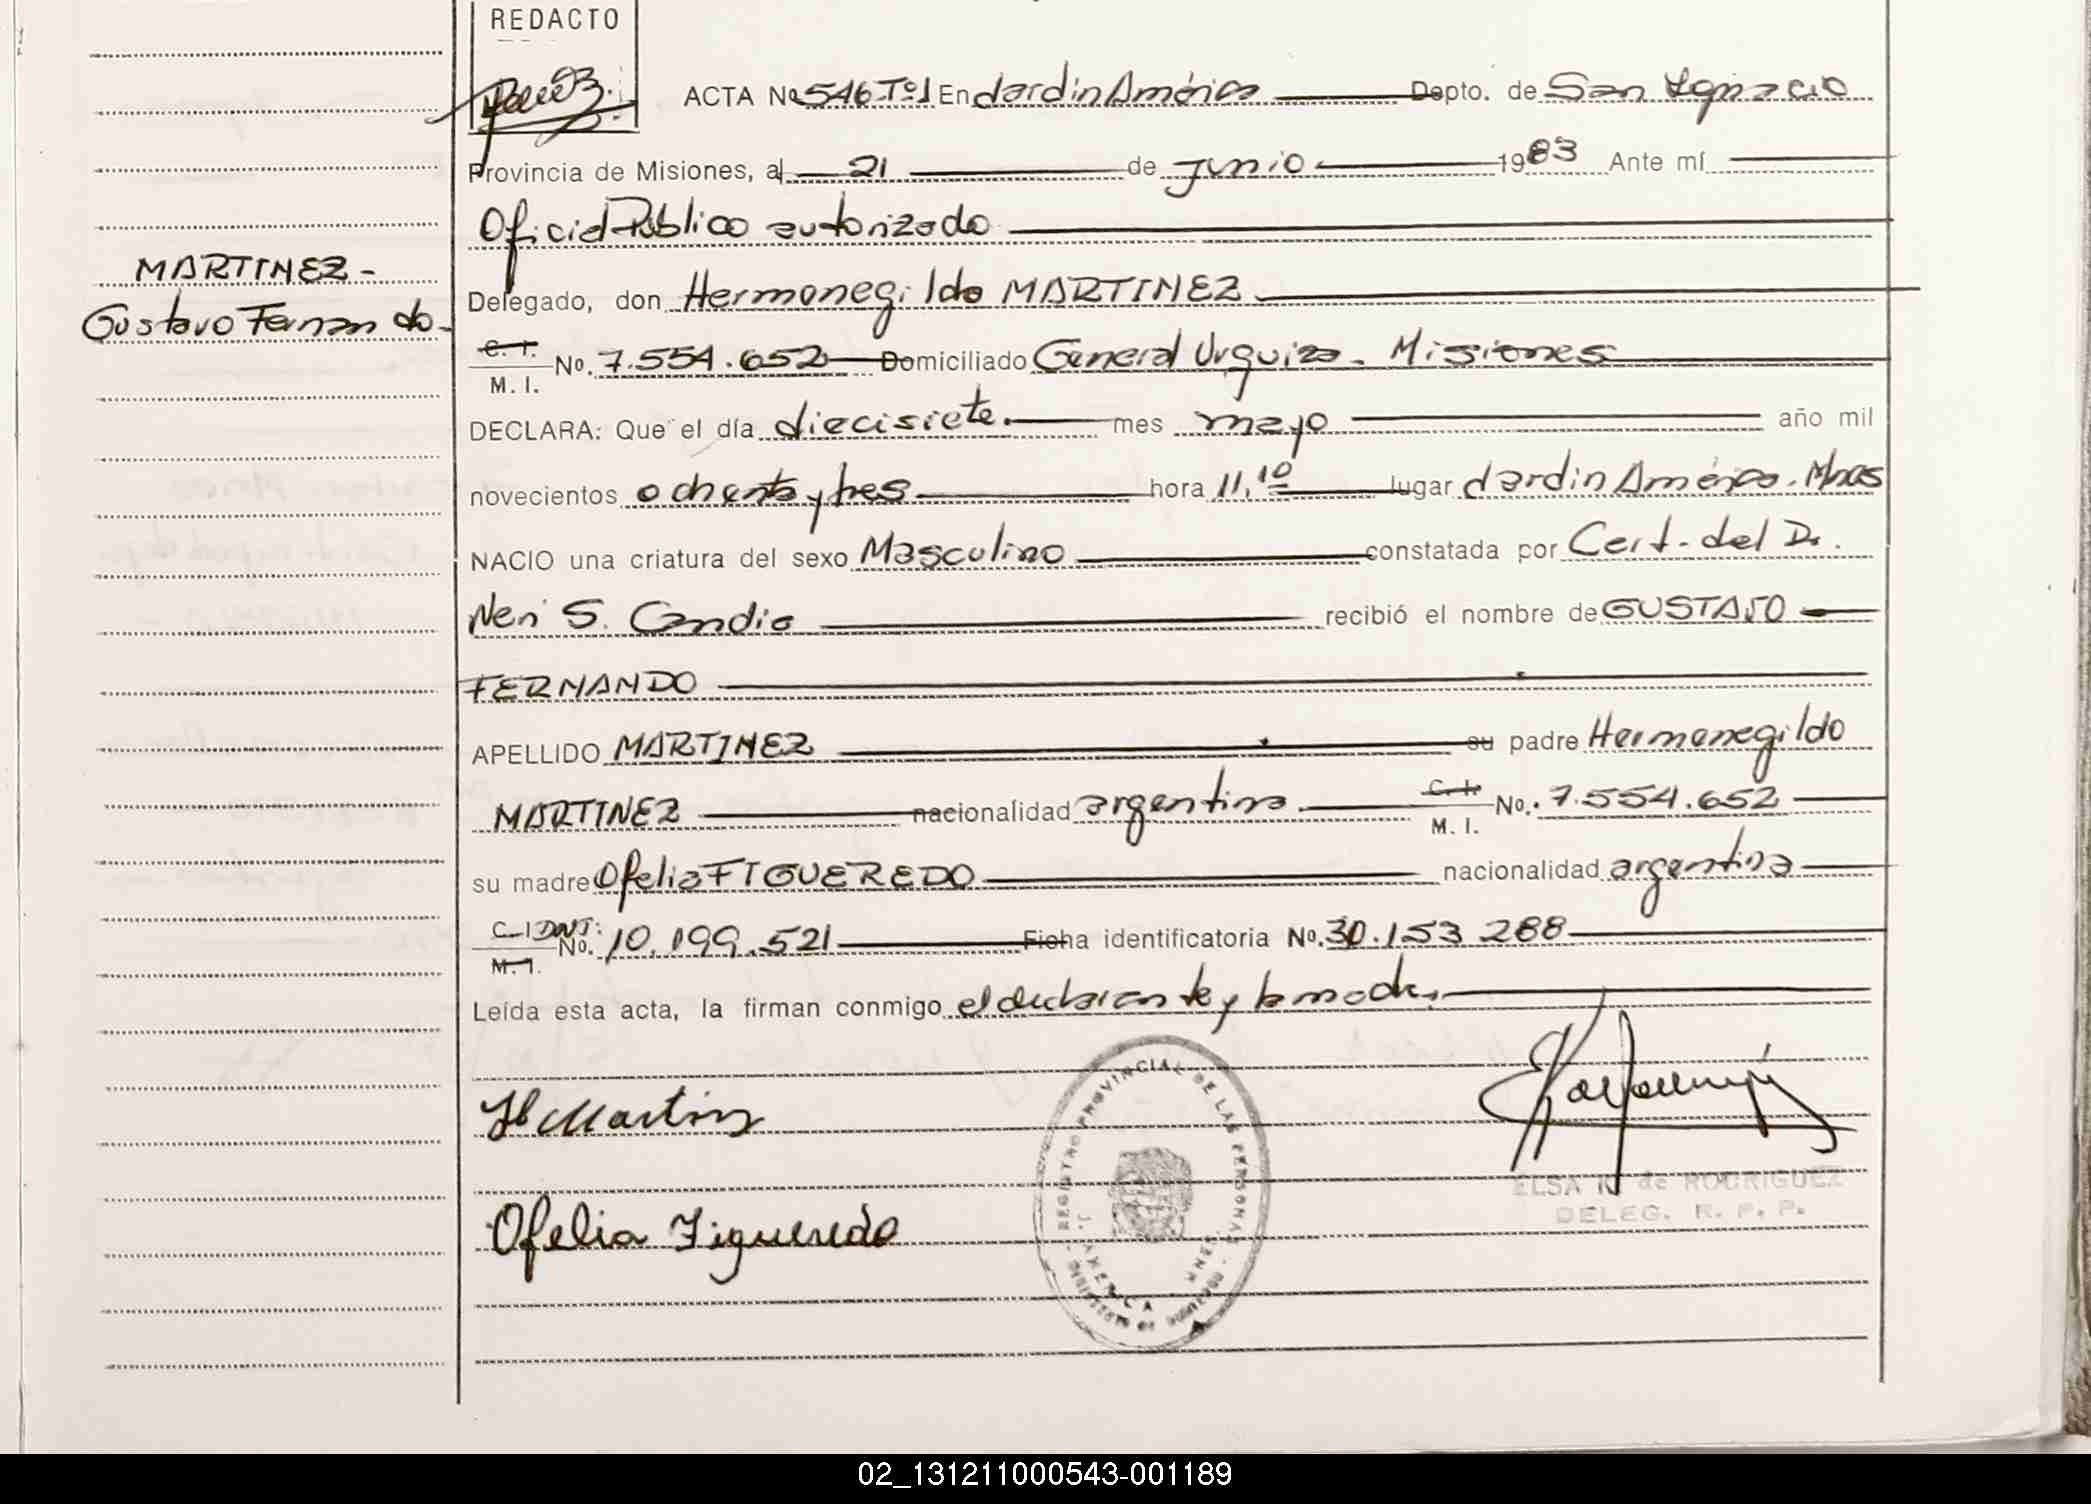 REDACTO
ACTA No 546-Tº1 En Jardin América Depto. de San Ignacio
Provincia de Misiones, a 21 de junio 1983 Ante mí
Oficial Público autorizado
MARTINEZ-
Delegado, don Hermenegildo MARTINEZ
Gustavo Fernando-
C. I. M. I. No. 7.554.652 Domiciliado General Urquiza. Misiones
DECLARA: Que el día diecisiete. mes mayo año mil
novecientos ochenta y tres hora 11,10 lugar Jardin América. Mnes
NACIO una criatura del sexo Masculino constatada por Cert. del Dr.
Neri S. Candia recibió el nombre de GUSTAVO
FERNANDO
APELLIDO MARTINEZ su padre Hermenegildo
MARTINEZ nacionalidad argentina. C. I. M. I. No. 7.554.652
su madre Ofelia FIGUEREDO nacionalidad argentina
C. I. DNI: M. I. No. 10.199.521 Ficha identificatoria No. 30.153.288
Leída esta acta, la firman conmigo el declarante y la madre.
H Martinz
REGISTRO PROVINCIAL DE LAS PERSONAS
J. AMERICA
Ofelia Figueredo
ELSA K de RODRIGUEZ
DELEG. R. P. P.
02_131211000543-001189